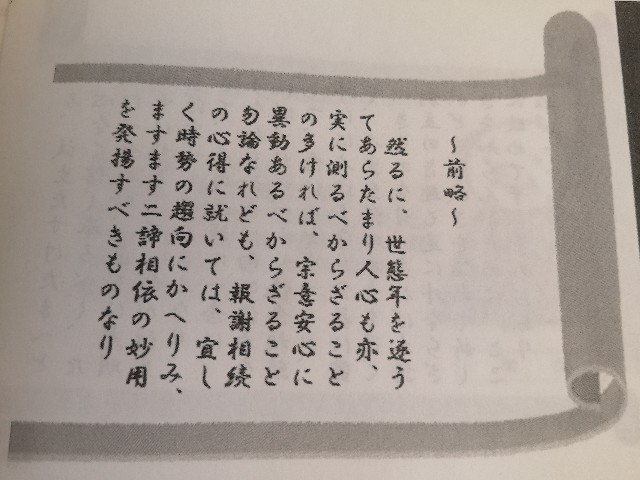 ～前略～
然るに、世態年を逐う
てあらたまり人心も亦、
実に測るべからざること
の多ければ、宗意安心に
異動あるべからざること
勿論なれども、報謝相続
の心得に就いては、宜し
く時勢の趨向にかへりみ、
ますます二諦相依の妙用
を発揚すべきものなり